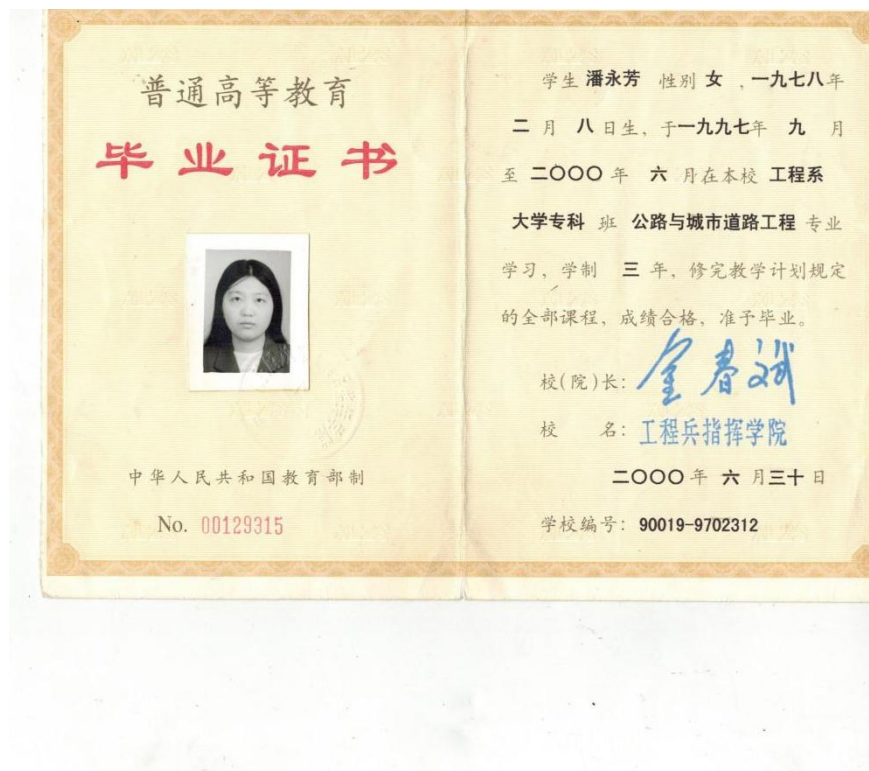 普通高等教育
毕业证书
中华人民共和国教育部制
No. 00129315
学生 潘永芳 性别 女 ,一九七八年
二 月 八 日生, 于一九九七年 九 月
至 二〇〇〇 年 六 月在本校 工程系
大学专科 班 公路与城市道路工程 专业
学习, 学制 三 年, 修完教学计划规定
的全部课程, 成绩合格, 准予毕业。
校(院)长:
校 名: 工程兵指挥学院
二〇〇〇 年 六 月三十 日
学校编号: 90019-9702312